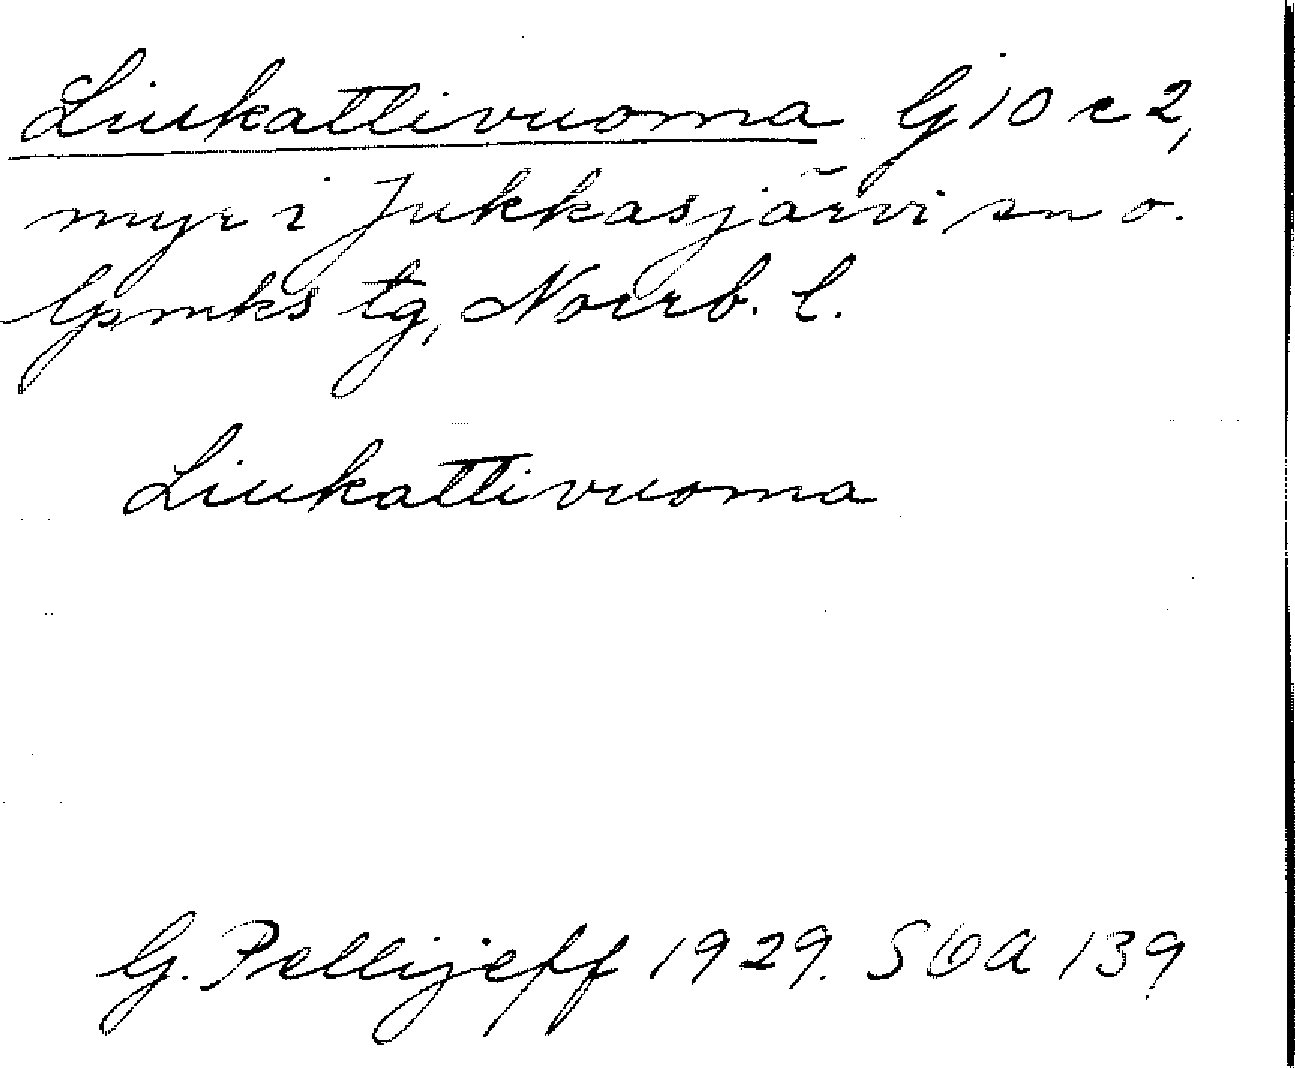 Liukattivuoma Gj 10 c 2,
myr i Jukkasjärvi sn o.
Gpmks tg, Norrb. l.
Liukattivuoma
G. Pellijeff 1929. SOA 139